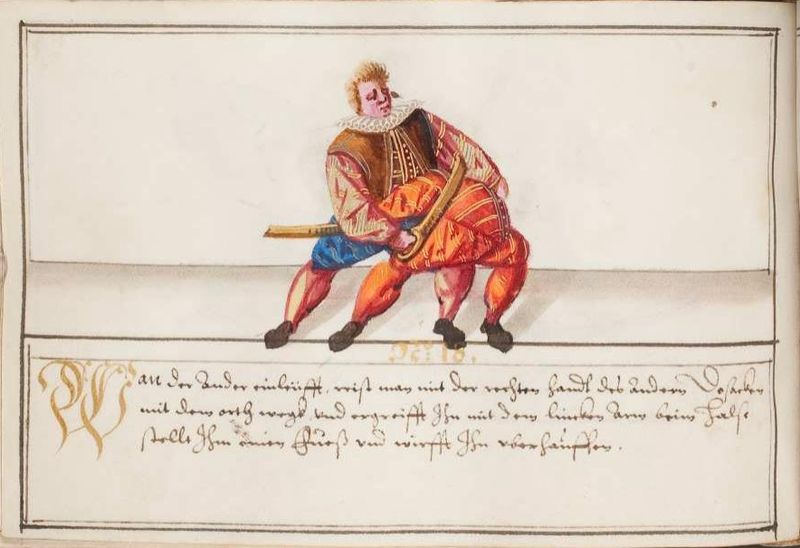 N: 18.
Wan der Ander einleüfft, reist man mit der rechten handt des andern Dosacken
mit dem orth wegk, vnd ergreifft Ihn mit dem lincken Arm beim halse
stellt Ihm einen Fueß vnd wirfft Ihn vberhauffen.